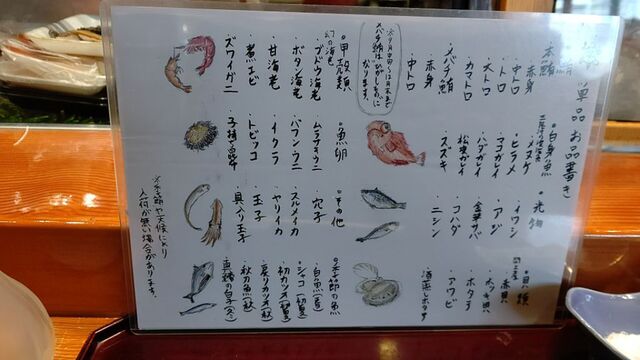 単品お品書き
本鮪
・赤身
・中トロ
・大トロ
・カマトロ
・メバチ鮪
・赤身
・中トロ
・白身魚
・メヌケ
・ヒラメ
・マコガレイ
・ババガレイ
・松皮ガレイ
・スズキ
・光物
・イワシ
・アジ
・金華サバ
・コハダ
・ニシン
・貝類
・赤貝
・ホッキ貝
・ホタテ
・アワビ
・酒蒸しホタテ
・甲殻類
幻の海老
・ブドウ海老
・ボタン海老
・甘海老
・煮エビ
・ズワイガニ
・魚卵
・ムラサキウニ
・バフンウニ
・イクラ
・トビッコ
・子持ち昆布
・その他
・穴子
・スルメイカ
・ヤリイカ
・玉子
・具入り玉子
・季節の魚
・白魚(春)
・シャコ(初夏)
・初カツオ(初夏)
・戻りカツオ(秋)
・秋刀魚(秋)
・真鱈の白子(冬)
※季節や天候により
入荷が無い場合があります。